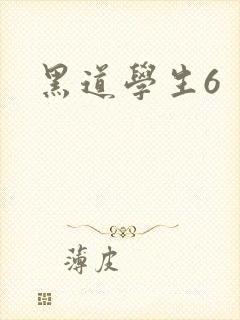 黑道學生6
薄皮